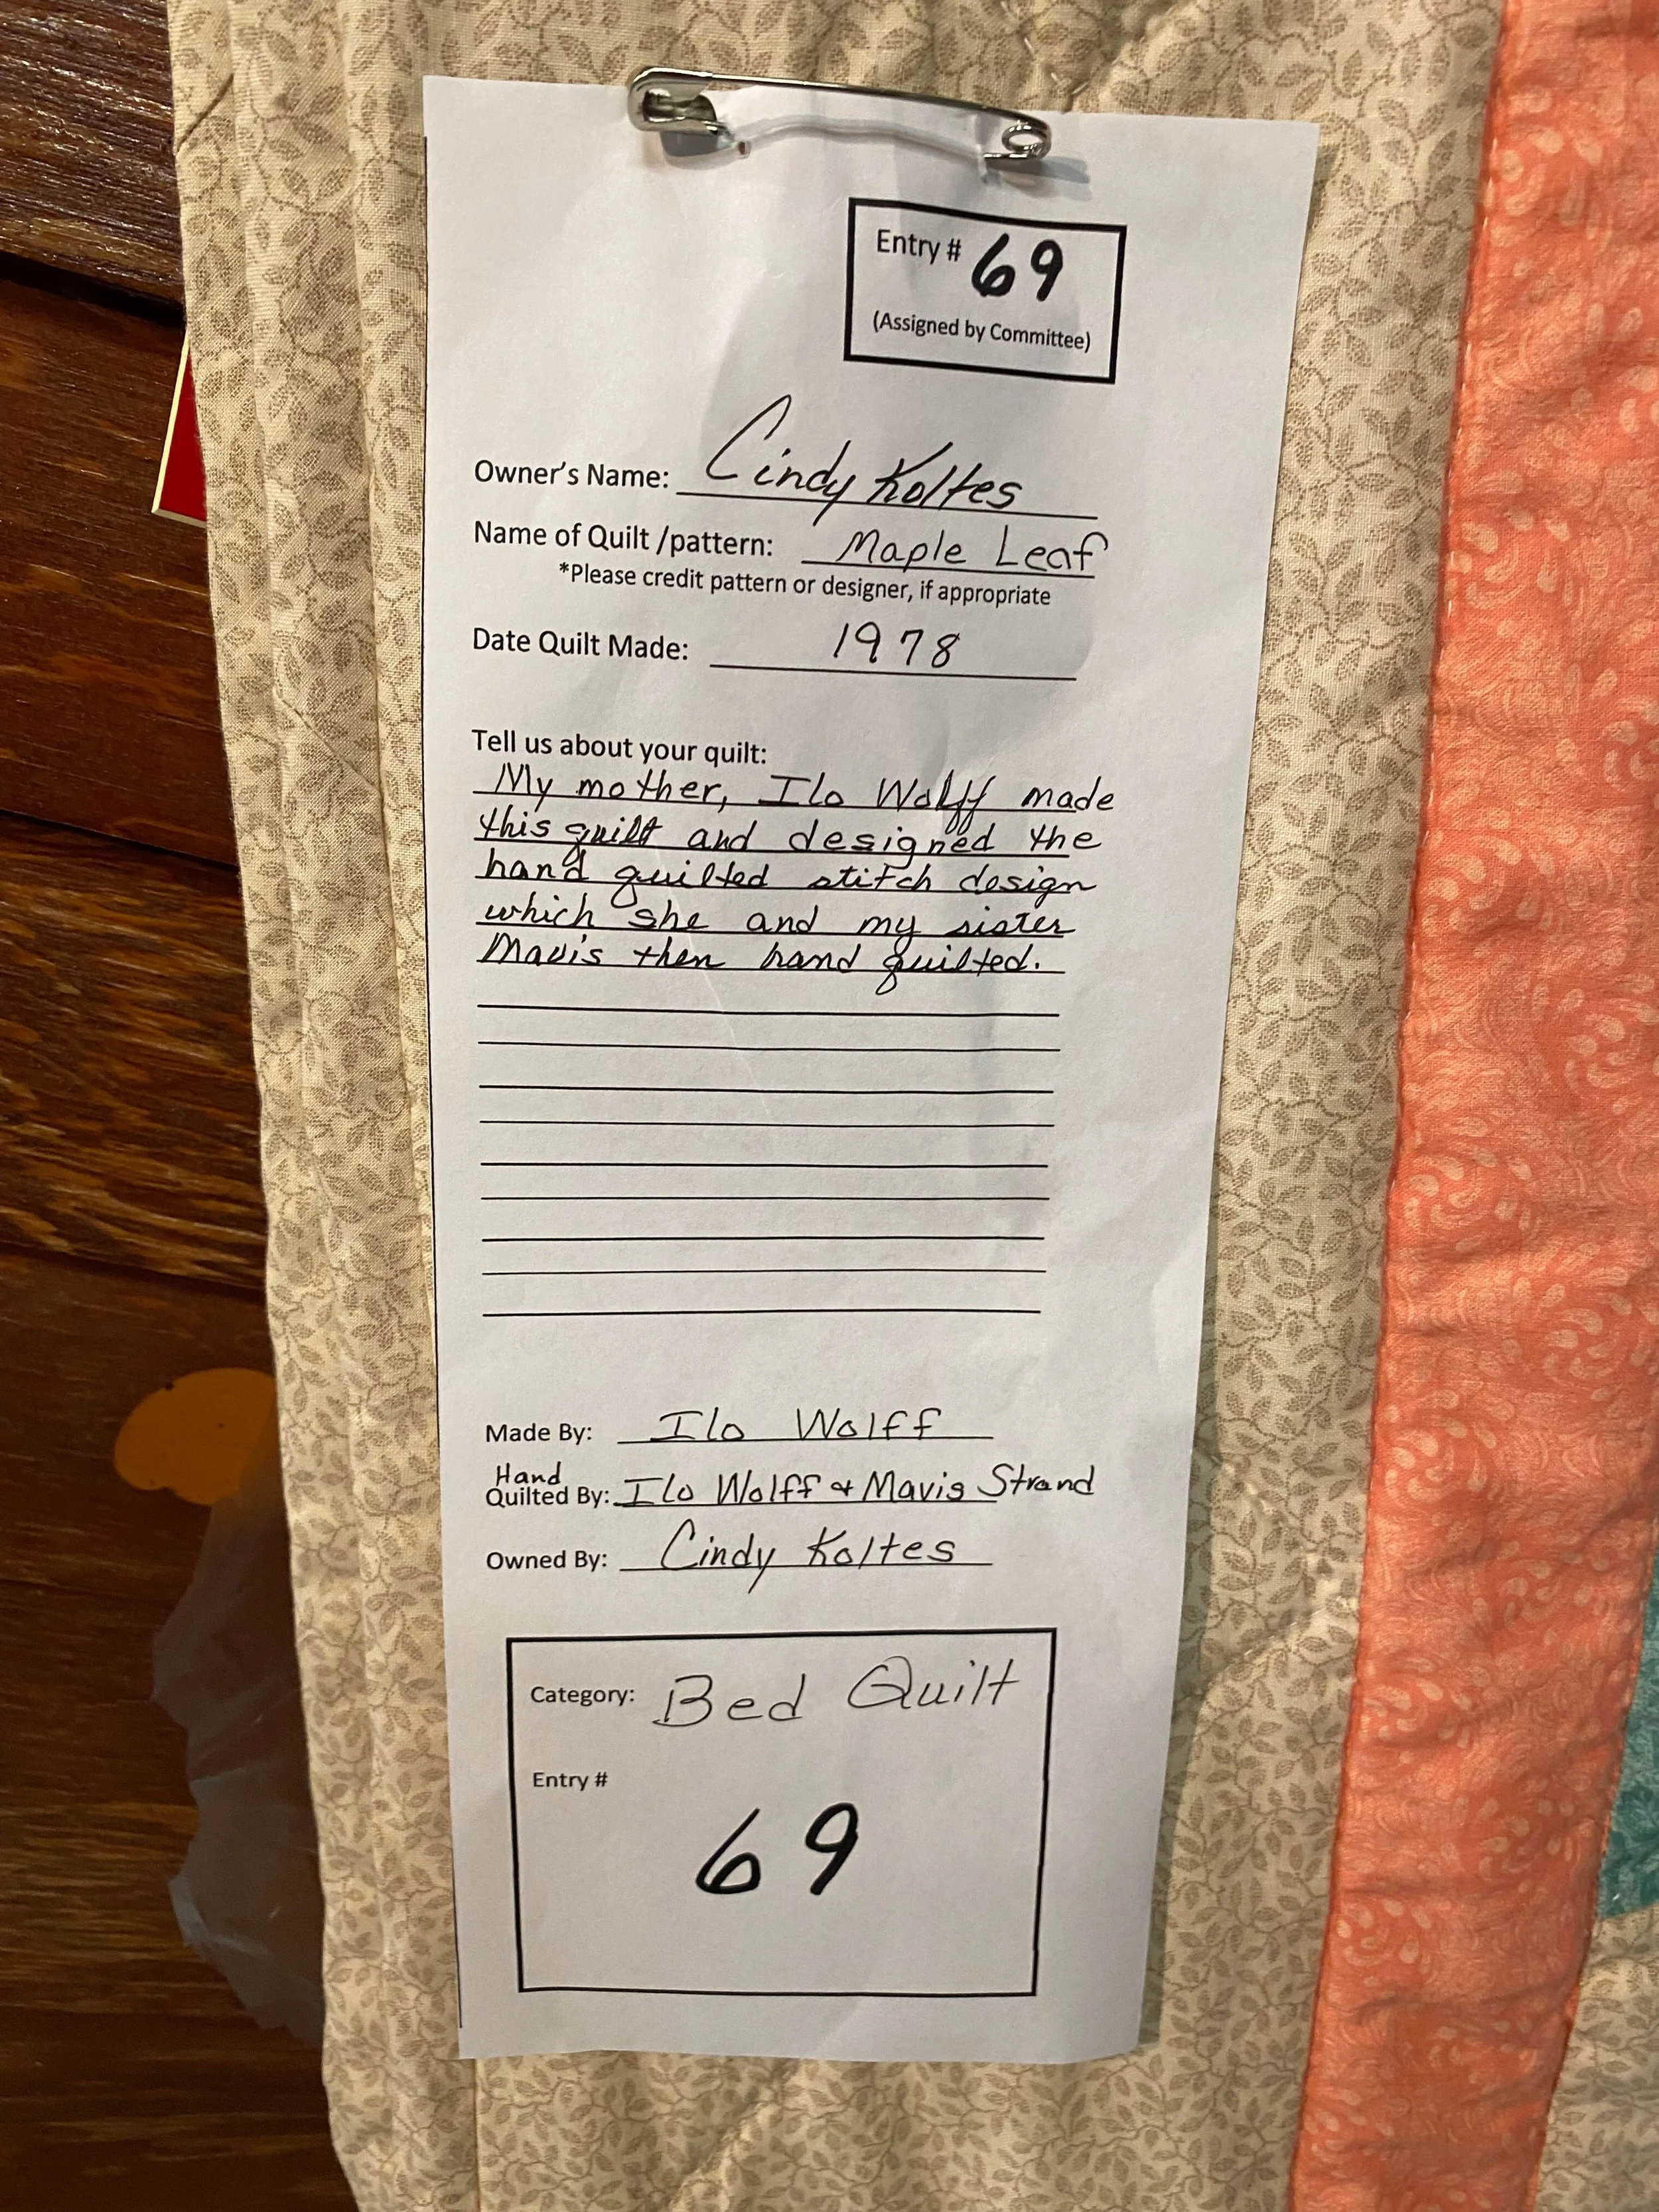 Entry # 69
(Assigned by Committee)
Owner's Name: Cindy Koltes
Name of Quilt /pattern: Maple Leaf
*Please credit pattern or designer, if appropriate
Date Quilt Made: 1978
Tell us about your quilt:
My mother, Ilo Wolff made
this quilt and designed the
hand quilted stitch design
which she and my sister
Mavis then hand quilted.
Made By: Ilo Wolff
Hand
Quilted By: Ilo Wolff & Mavis Strand
Owned By: Cindy Koltes
Category: Bed Quilt
Entry #
69